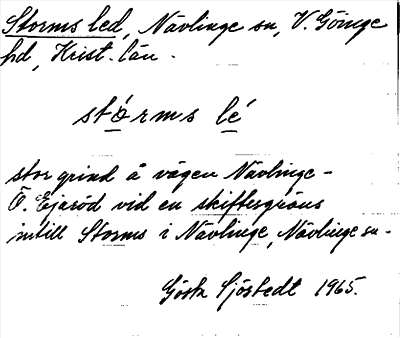 Storms led, Nävlinge sn, V. Göinge
hd, Krist. län.
stórms lé
stor grind å vägen Nävlinge-
Ö. Ejaröd vid en skiftesgräns
intill Storms i Nävlinge, Nävlinge sn-
Gösta Sjöstedt 1965.